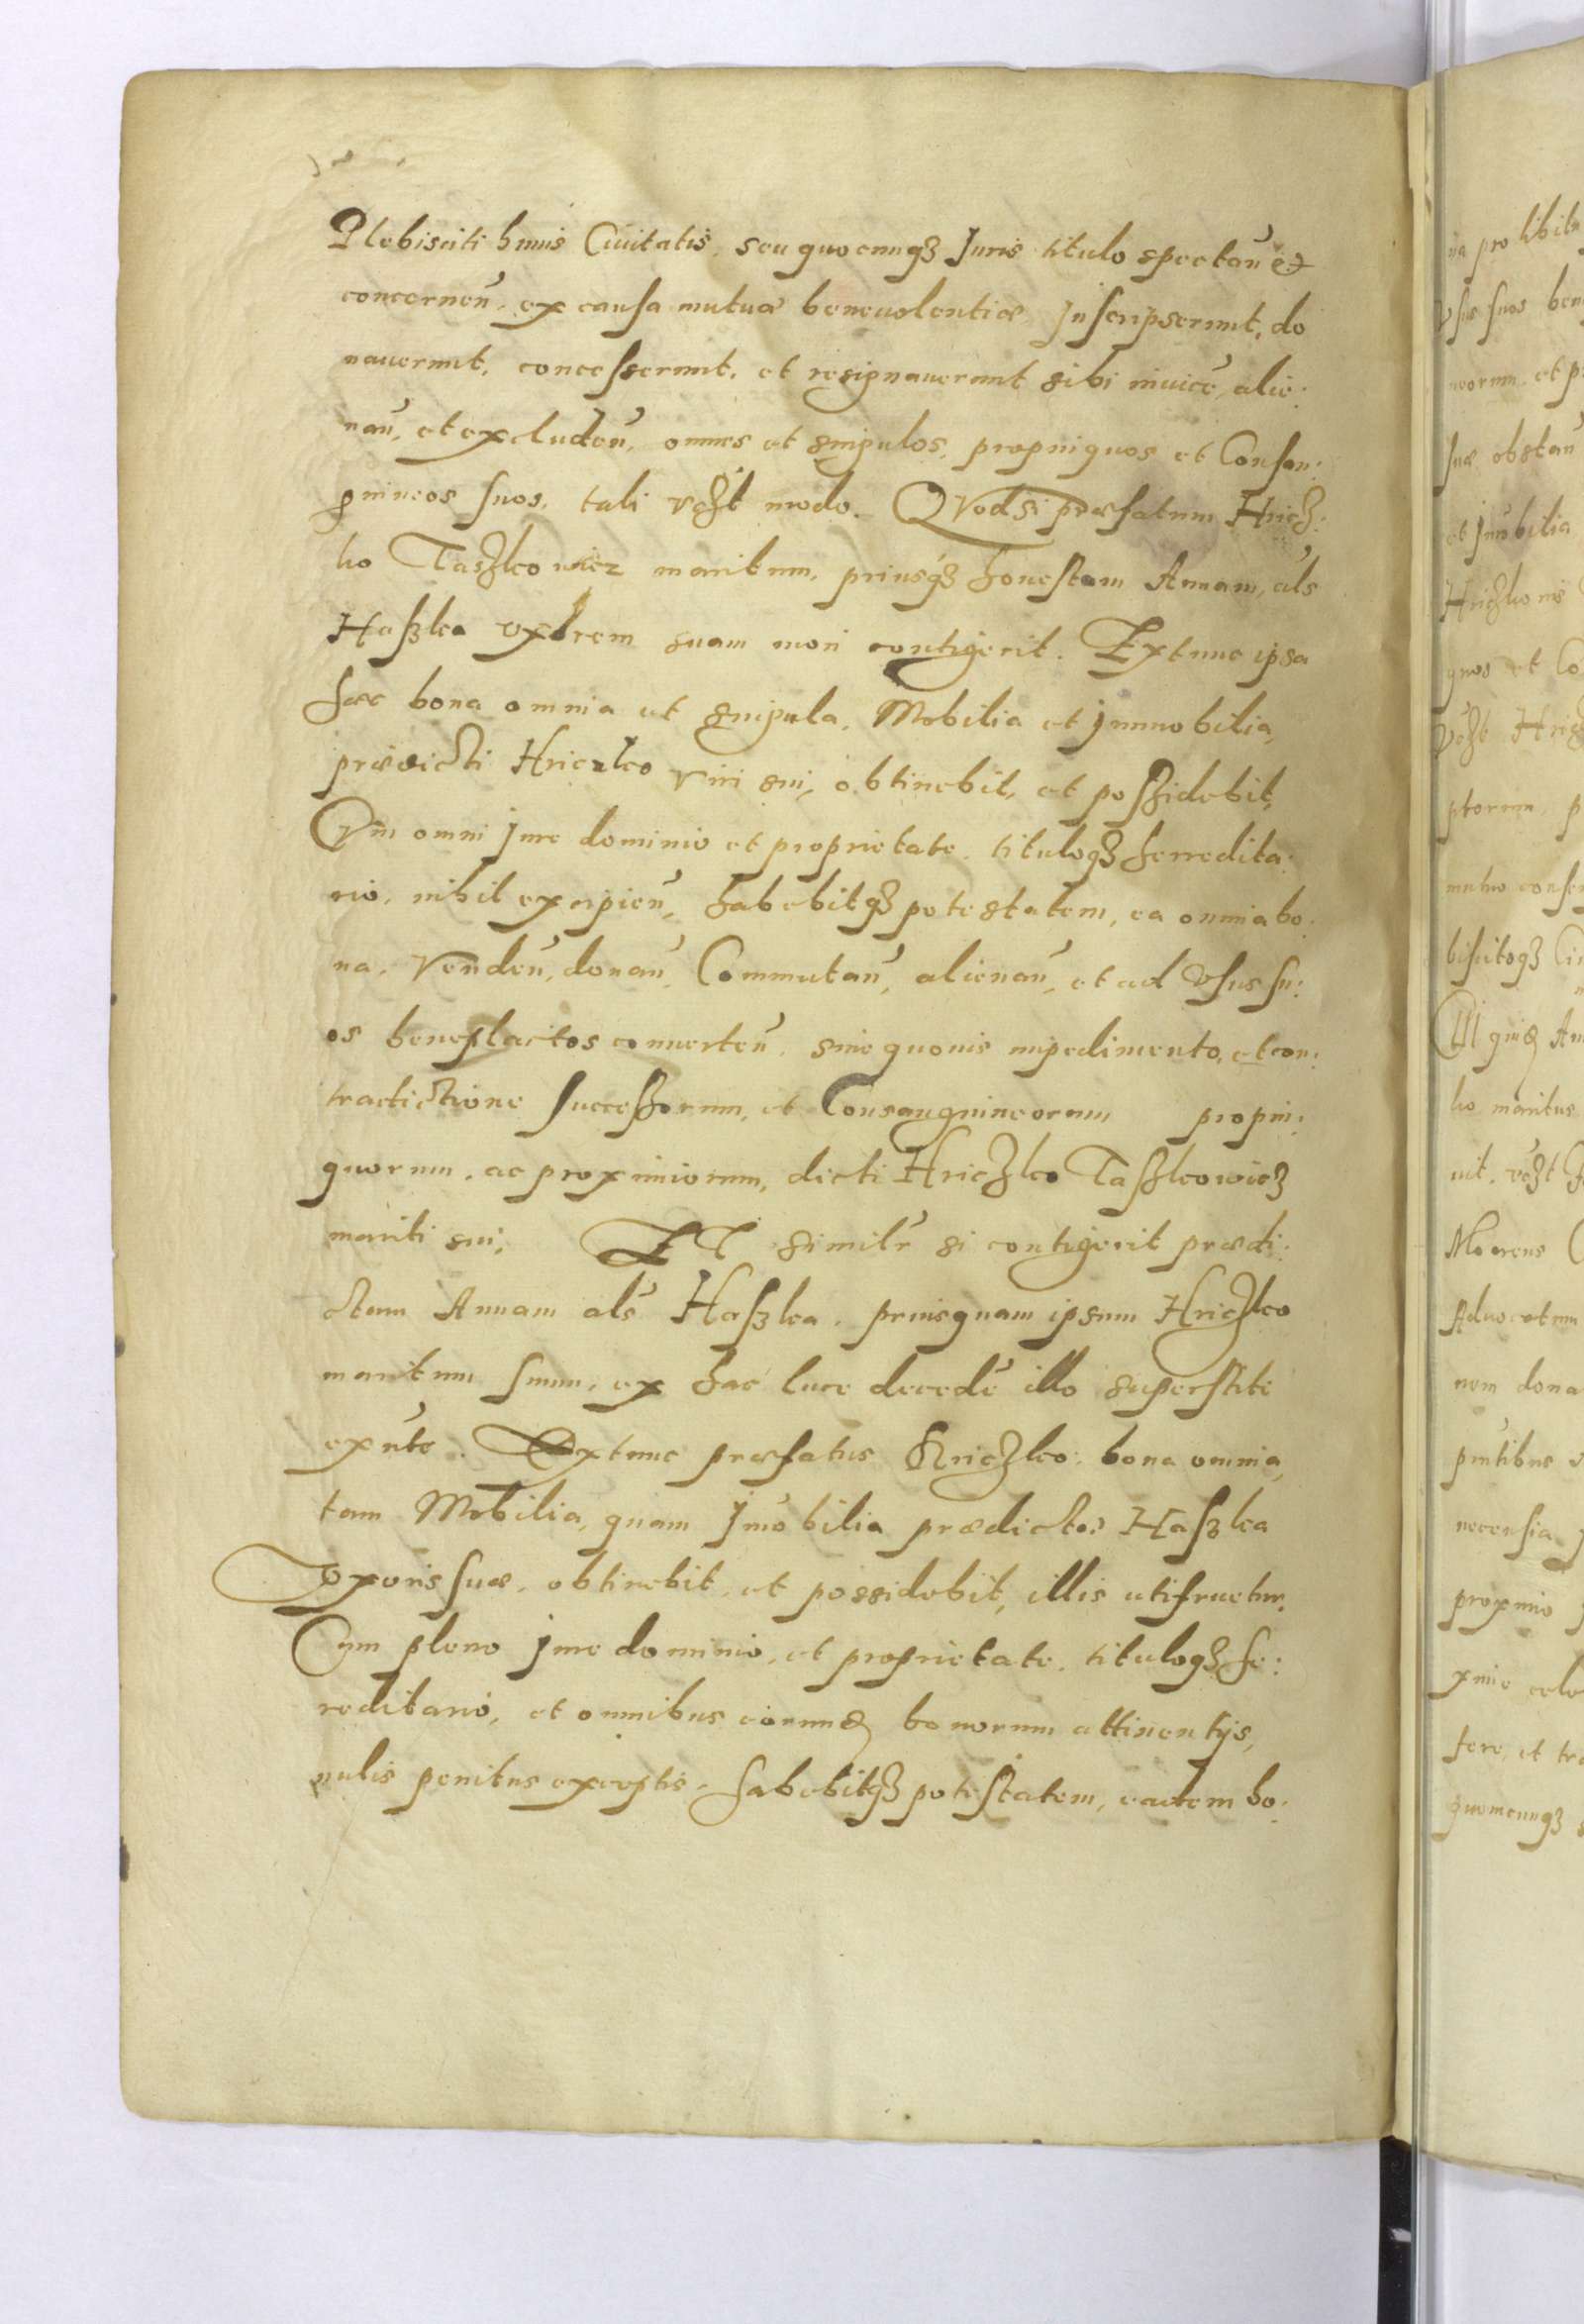 Plebisciti huius Ciuitatis, seu quocunqȝ Juris titulo spectan̄ et
concernen̄, ex causa mutuæ beneuolentiæ Jnscripserunt, do
nauerunt, concesserunt, et resignauerunt sibi inuicē, alie:
nan̄, et excluden̄, omnes et singulos, propinquos et Consan:
guineos suos, tali vȝt modo. QVod si præfatum Hricȝ:
ko Taszkowicz maritum, priusqȝ honestam Annam, als
Haszka vxorem suam mori contigerit. Extunc ipsa
hæc bona omnia et singula, Mobilia et jmmobilia,
prædicti Hriczko viri sui, obtinebit, et possidebit,
CVm omni jure dominio et proprietate, tituloqȝ herredita:
rio, nihil excipien̄, habebitqȝ potestatem, ea omnia bo:
na, venden̄, donan̄, Commutan̄, alienan̄, et ad vsus su:
os beneplacitos conuerten̄, sine quouis impedimento, et con:
tractictione successorum, et Consanguineorum propin:
quorum, ac proximiorum, dicti Hricȝko Taszkowicȝ
mariti sui, ET similr̄ si contigerit prædi:
ctam Annam als Haszka, priusquam ipsum Hricȝko
maritum suum, ex hac luce decedē illo superstite
exn̄te. Extunc præfatus Hricȝko bona omnia,
tam Mobilia, quam jmōbilia prædictæ Haszka
vxoris suæ, obtinebit, et possidebit, illis utifruetur,
Cum pleno jure dominio, et proprietate, tituloqȝ he:
reditario, et omnibus eorund bonorum attinentijs,
nulis penitus exceptis, habebitqȝ potestatem, eadem bo: